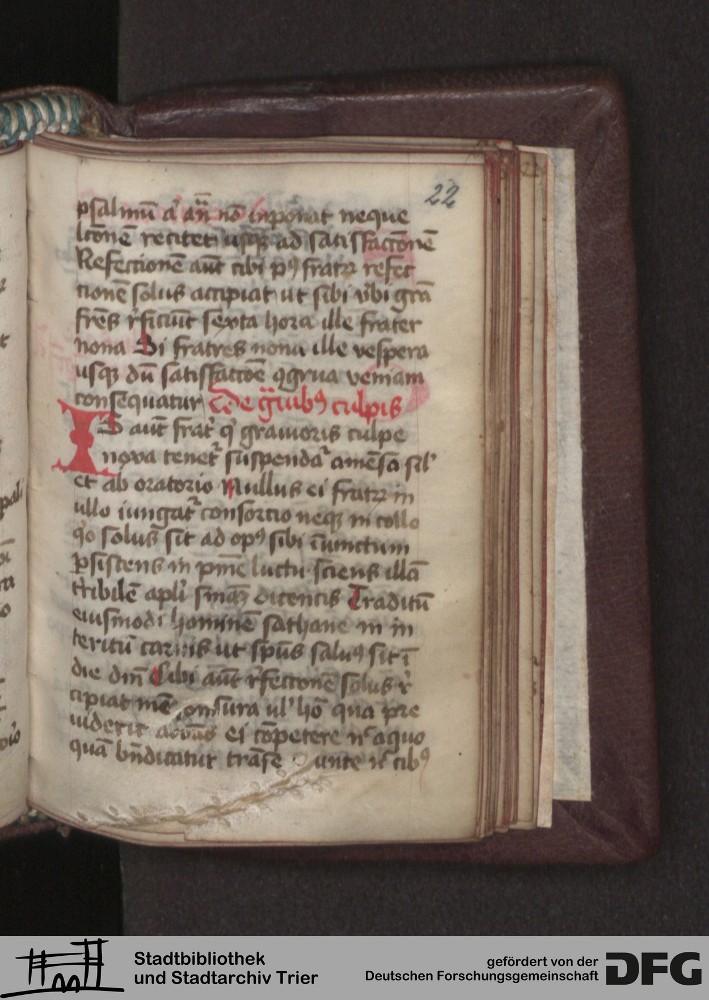 22
psalmū aū añ nō inponat neque
lc̄onē recitet usqꝫ ad satisfacc̄onē
Refectionē aūt cibi pꝰ fratꝝ refec
tionē solus accipiat ut sibi v̓bi grā
frēs r̓ficiūt sexta hora ille frater
nona Si fratres nona ille vespera
usqꝫ dū satisfacc̄oe ꝯgrua veniam
consequatur De g̓uibꝰ culpis
IS aūt frat̓ q̓ grauioris culpe
noxa tenet̓ suspenda̓ a mensa sil̓
et ab oratorio Nullus ei fratꝝ in
ullo iungat̓ consorcio neqꝫ in collo
q̓o solus sit ad opꝰ sibi iniunctum
ꝑsistens in pn̄ie luctu sciens illā
t̓ribilē apl̓i sn̄iaꝫ dicentis Traditū
eiusmodi hominē sathane in in
teritū carnis ut sp̄us saluꝰ sit ī
die dn̄i Cibi aūt r̓fecc̄onē solus ꝑ
cipiat mēsura vl̓ ho̓ qua pre
uiderit abbas ei cōpetere n̓ a quo
quā bn̄dicatur transeunte n̓ cibꝰ
Stadtbibliothek
und Stadtarchiv Trier
gefördert von der
Deutschen Forschungsgemeinschaft
DFG